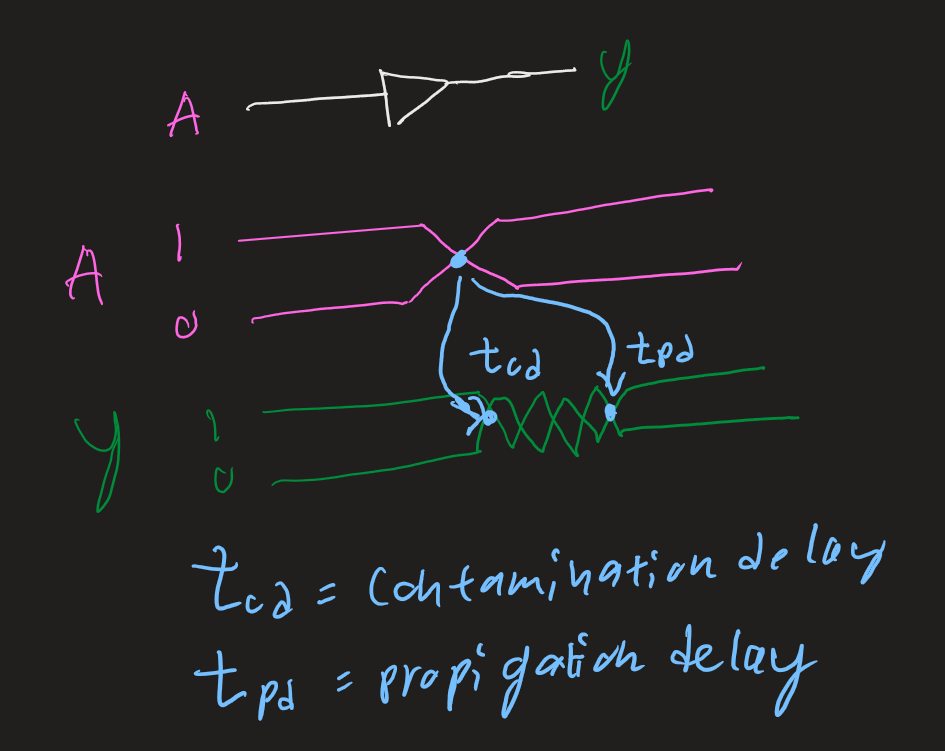 A
y
A
1
0
tcd
tpd
y
1
0
tcd = Contamination delay
tpd = propigation delay